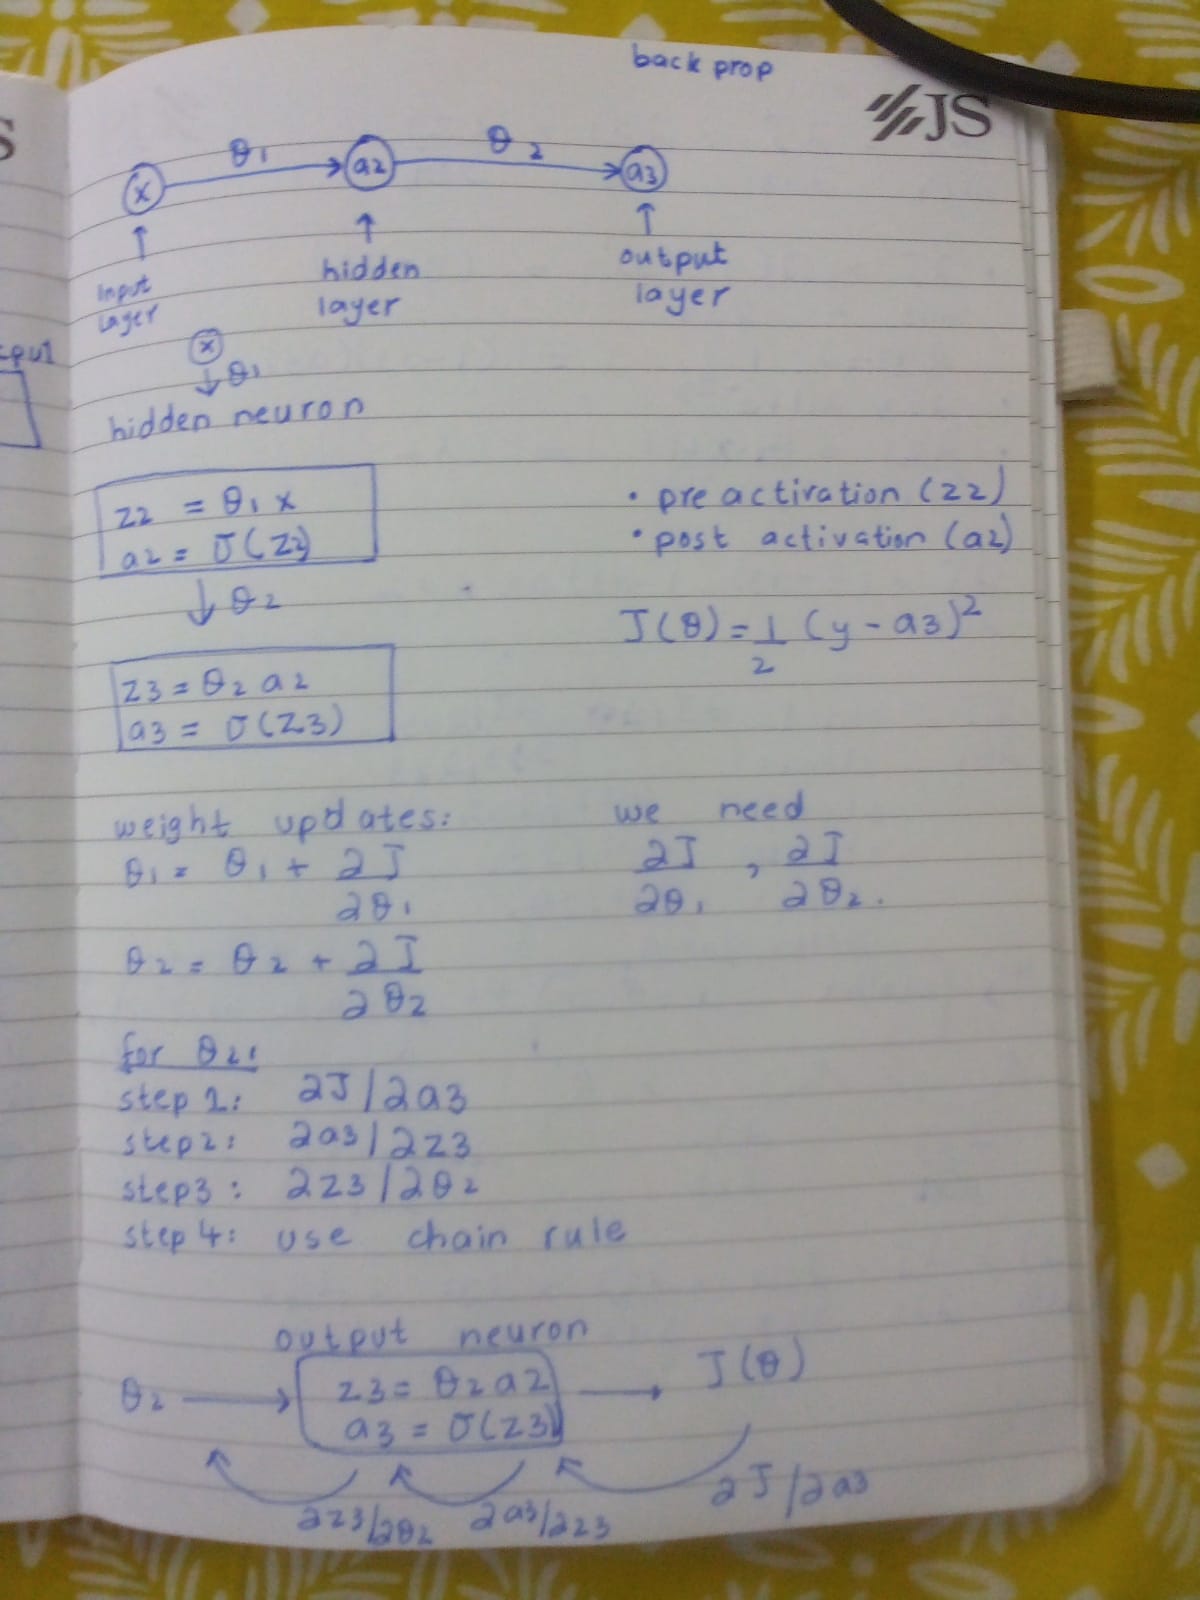 back prop
JS
S
θ1 θ2
x a2 a3
↑ ↑ ↑
input layer
hidden layer
output layer
x
↓ θ1
hidden neuron
z2 = θ1 x
a2 = σ(z2)
• pre activation (z2)
• post activation (a2)
↓ θ2
J(θ) = 1/2 (y - a3)²
z3 = θ2 a2
a3 = σ(z3)
weight updates:
θ1 = θ1 + ∂J/∂θ1
θ2 = θ2 + ∂J/∂θ2
we need
∂J/∂θ1 , ∂J/∂θ2.
for θ2:
step 1: ∂J/∂a3
step2: ∂a3/∂z3
step3: ∂z3/∂θ2
step 4: use chain rule
output neuron
θ2 → z3 = θ2 a2 → J(θ)
a3 = σ(z3)
∂z3/∂θ2 ∂a3/∂z3 ∂J/∂a3